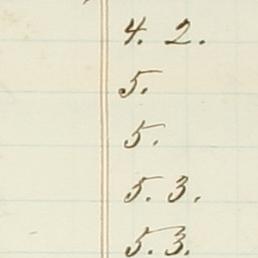 4. 2.
5.
5.
5. 3.
5. 3.